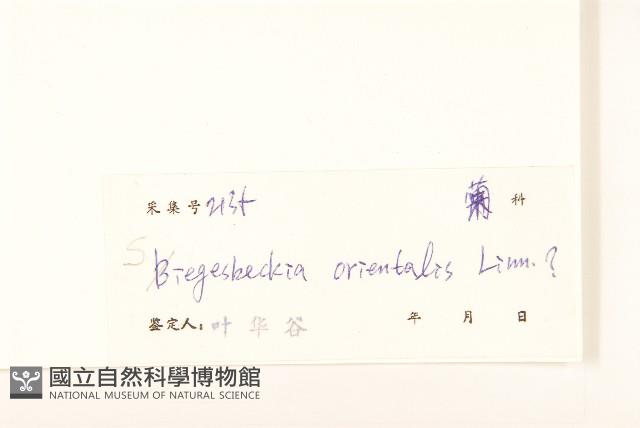 采集号 菊 科
Siegesbeckia orientalis Linn.?
鉴定人: 叶华谷 年 月 日
國立自然科學博物館
NATIONAL MUSEUM OF NATURAL SCIENCE